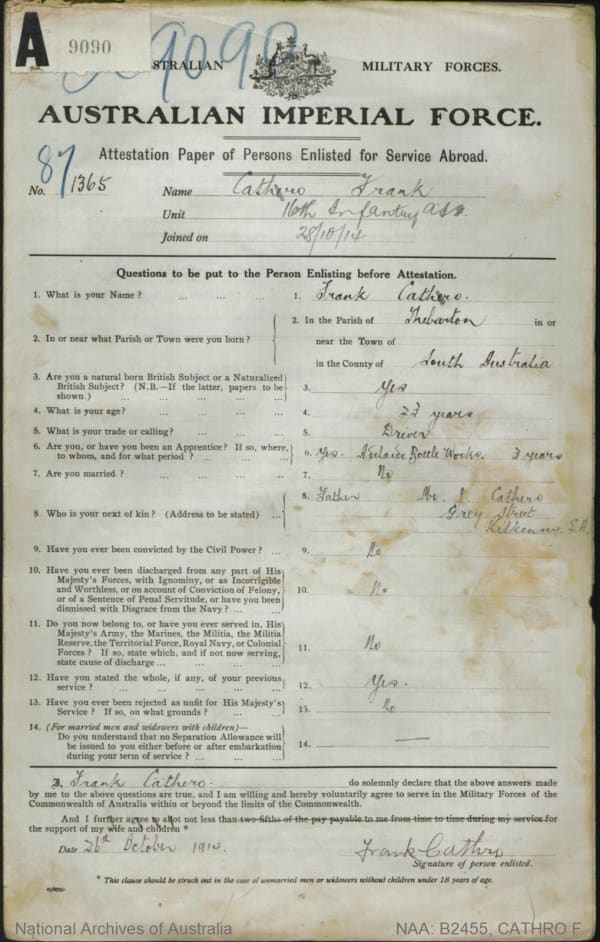 A 9090
9090
STRALIAN MILITARY FORCES.
AUSTRALIAN IMPERIAL FORCE.
Attestation Paper of Persons Enlisted for Service Abroad.
87
No. 1365 Name Cathero Frank
Unit 16th Infantry
Joined on 28/10/14
Questions to be put to the Person Enlisting before Attestation.
1. What is your Name? ... ... ... 1. Frank Cathero.
2. In or near what Parish or Town were you born? 2. In the Parish of Thebarton in or
near the Town of
in the County of South Australia
3. Are you a natural born British Subject or a Naturalized
British Subject? (N.B.—If the latter, papers to be
shown.) ... ... ... ... ... 3. Yes
4. What is your age? ... ... ... ... 4. 23 years
5. What is your trade or calling? ... ... ... 5. Driver
6. Are you, or have you been an Apprentice? If so, where,
to whom, and for what period? ... ... ... 6. Yes. Adelaide Bottle Works. 3 years
7. Are you married? ... ... ... ... 7. No
8 Who is your next of kin? (Address to be stated) ... 8. Father Mr. Cathero
Grey Street
Kilkenny. S.A.
9. Have you ever been convicted by the Civil Power? ... 9. No
10. Have you ever been discharged from any part of His
Majesty's Forces, with Ignominy, or as Incorrigible
and Worthless, or on account of Conviction of Felony,
or of a Sentence of Penal Servitude, or have you been
dismissed with Disgrace from the Navy? ... ... 10. No
11. Do you now belong to, or have you ever served in, His
Majesty's Army, the Marines, the Militia, the Militia
Reserve, the Territorial Force, Royal Navy, or Colonial
Forces? If so, state which, and if not now serving,
state cause of discharge ... ... ... ... 11. No
12. Have you stated the whole, if any, of your previous
service? ... ... ... ... ... 12. Yes.
13. Have you ever been rejected as unfit for His Majesty's
Service? If so, on what grounds? ... ... 13. No
14. (For married men and widowers with children)—
Do you understand that no Separation Allowance will
be issued to you either before or after embarkation
during your term of service? ... ... ... 14. —
I, Frank Cathero. do solemnly declare that the above answers made
by me to the above questions are true, and I am willing and hereby voluntarily agree to serve in the Military Forces of the
Commonwealth of Australia within or beyond the limits of the Commonwealth.
And I further agree to allot not less than two-fifths of the pay payable to me from time to time during my service for
the support of my wife and children *
Date 26th October 1914. Frank Cathro
Signature of person enlisted.
* This clause should be struck out in the case of unmarried men or widowers without children under 18 years of age.
National Archives of Australia NAA: B2455, CATHRO F